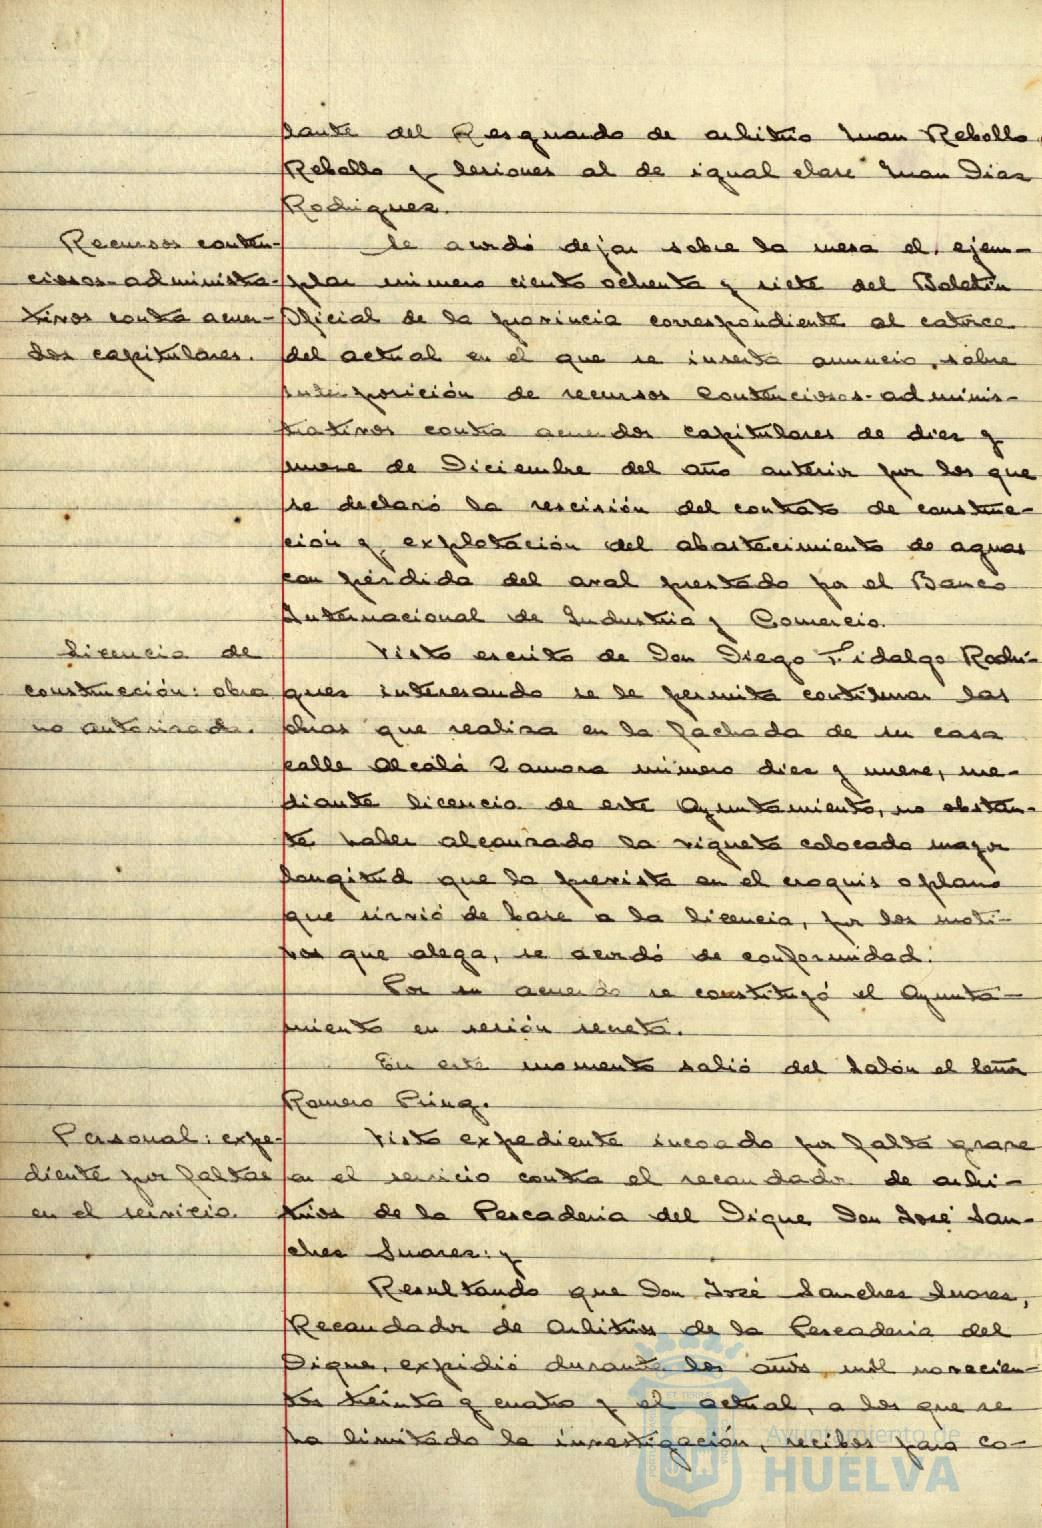 tante del Resguardo de arbitrio Juan Rebollo
Rebollo y lesiones al de igual clase Juan Diaz
Rodriguez.
Recursos conten-
ciosos-administra-
tivos contra acuer-
dos capitulares.
Se acordó dejar sobre la mesa el ejem-
plar número ciento ochenta y siete del Boletin
Oficial de la provincia correspondiente al catorce
del actual en el que se inserta anuncio sobre
interposición de recursos Contenciosos-adminis-
trativos contra acuerdos capitulares de diez y
nueve de Diciembre del año anterior por los que
se declaró la rescisión del contrato de construc-
ción y explotación del abastecimiento de aguas
con pérdida del aval prestado por el Banco
Internacional de Industria y Comercio.
Licencia de
construcción: obra
no autorizada.
Visto escrito de Don Diego Fidalgo Rodri-
guez interesando se le permita continuar las
obras que realiza en la fachada de su casa
calle Alcalá Zamora número diez y nueve, me-
diante licencia de este Ayuntamiento, no obstan-
te haber alcanzado la vigueta colocada mayor
longitud que la prevista en el croquis o plano
que sirvió de base a la licencia, por los moti-
vos que alega, se acordó de conformidad.
Por su acuerdo se constituyó el Ayunta-
miento en sesión secreta.
En este momento salió del Salón el Señor
Romero Pring.
Personal: expe-
diente por faltas
en el servicio.
Visto expediente incoado por falta grave
en el servicio contra el recaudador de arbi-
trios de la Pescaderia del Dique Don José San-
chez Suarez: y
Resultando que Don José Sanchez Suarez,
Recaudador de Arbitrios de la Pescaderia del
Dique, expidió durante los años mil novecien-
tos treinta y cuatro y el actual, a los que se
ha limitado la investigación, recibos para co-
Ayuntamiento de
HUELVA